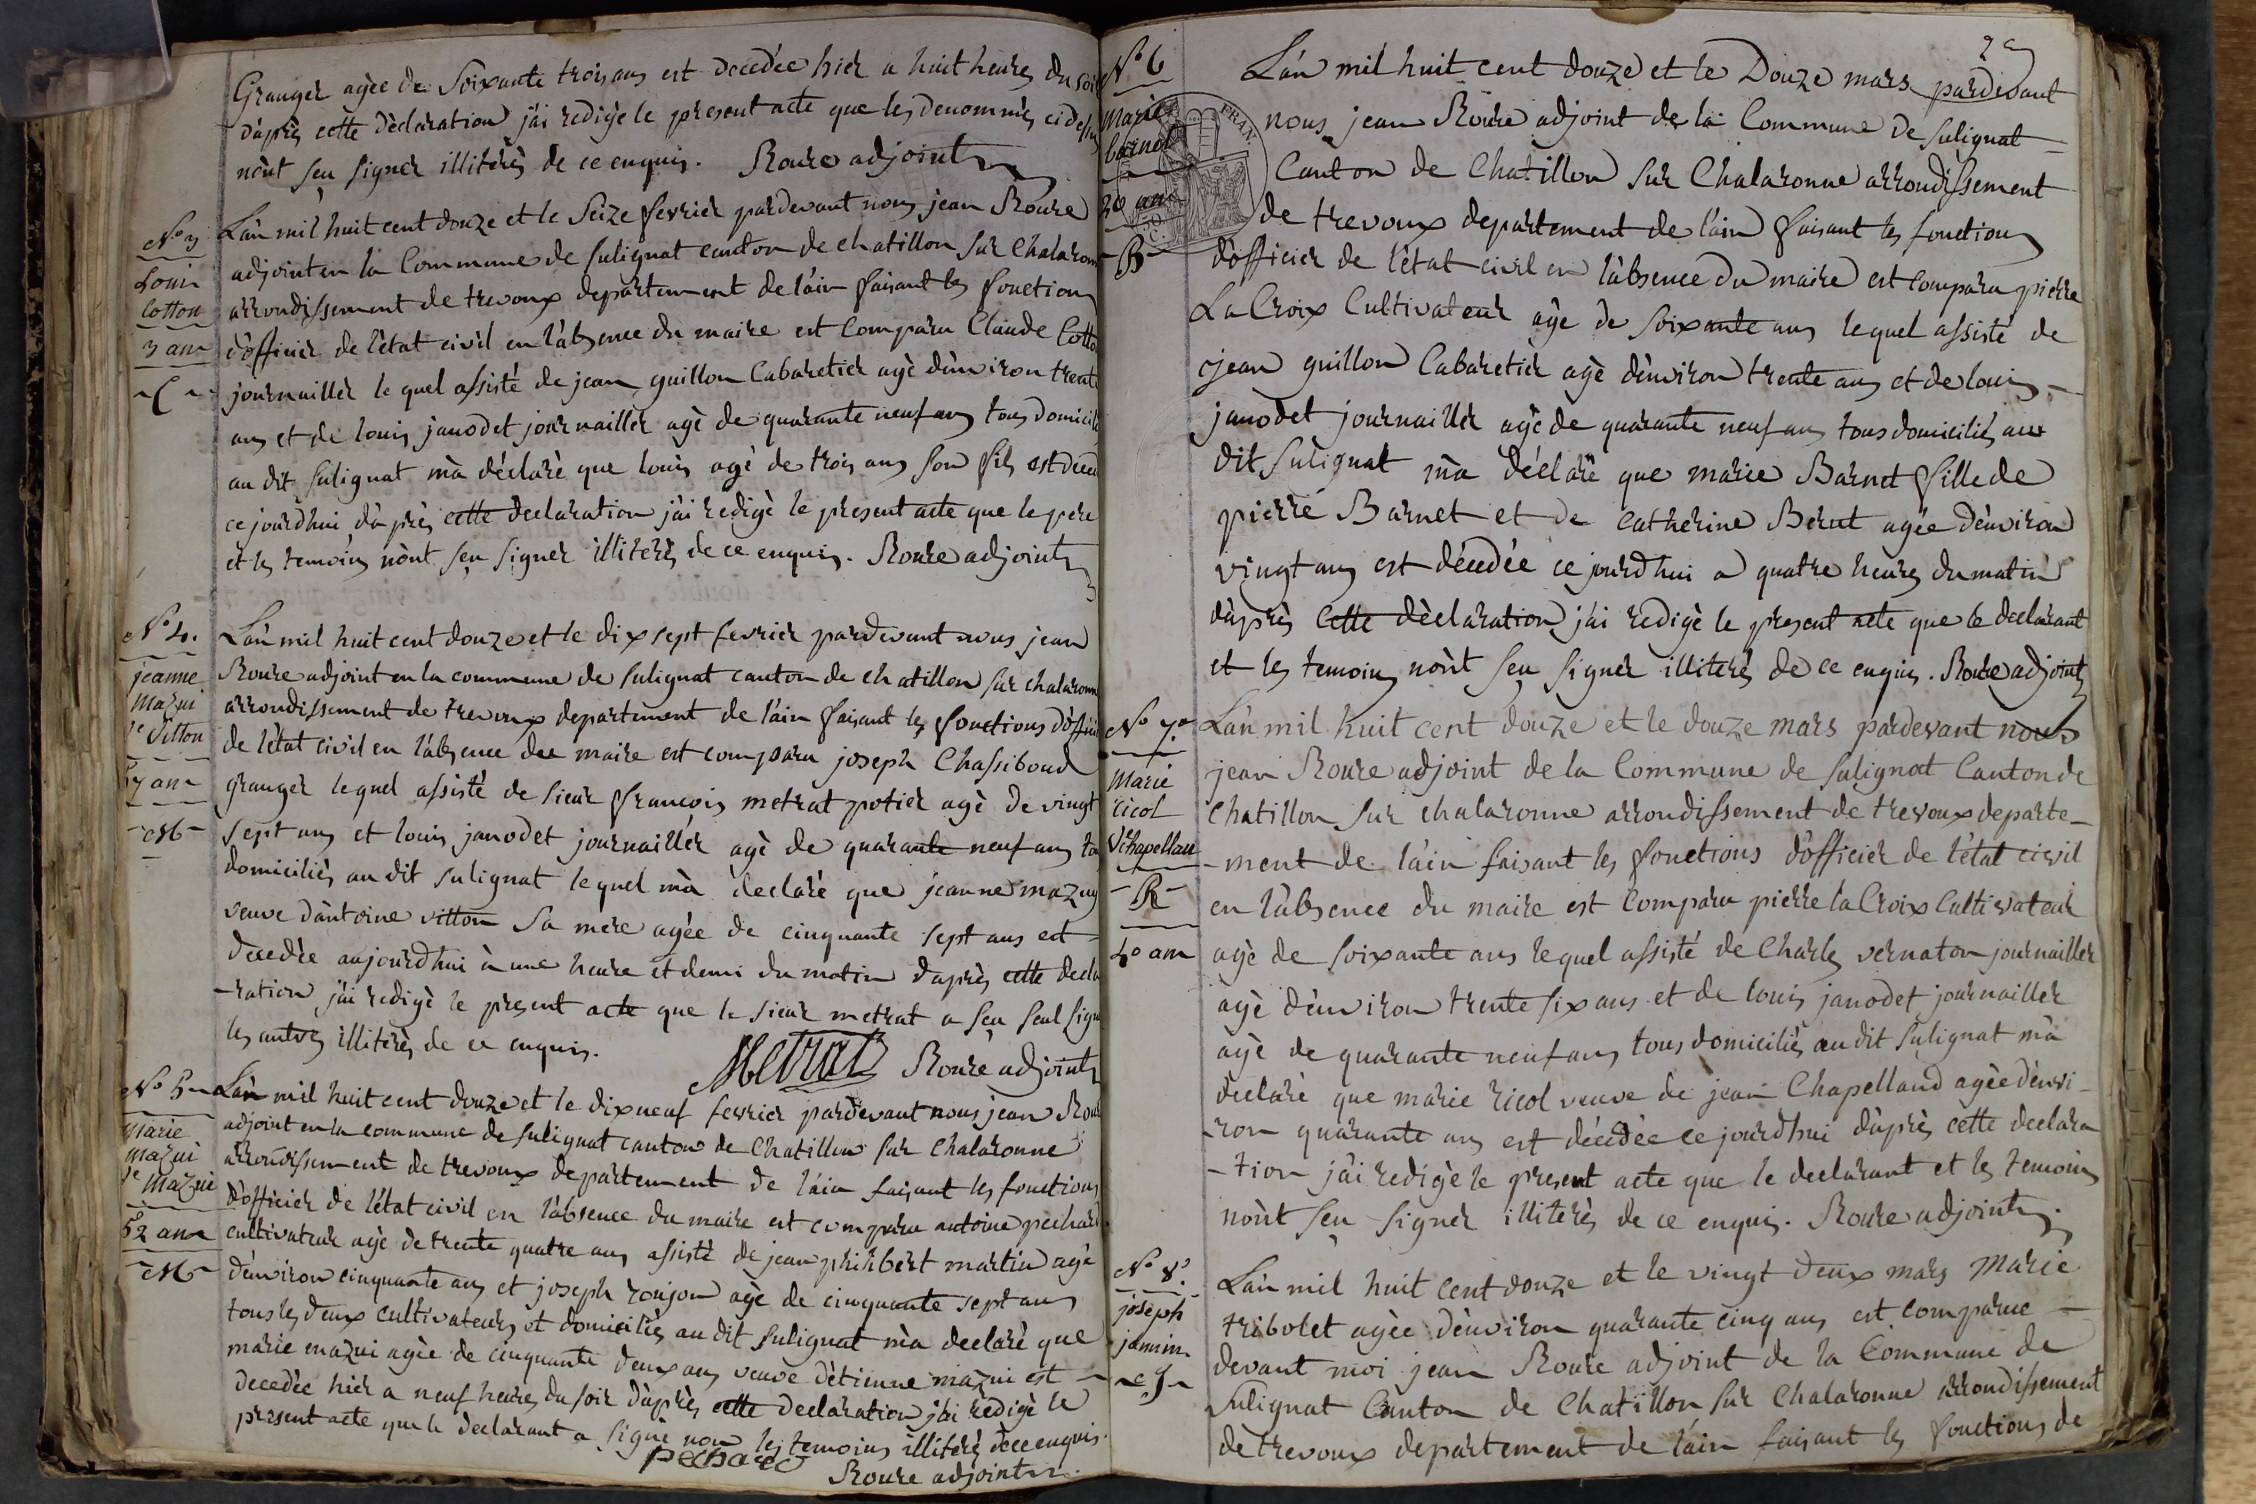 Granger agèe de Soixante trois ans est decedée hier a huit heures du soir
d'aprés cette dèclaration j'ai redigè le present acte que les denommés ci dessus
n'ont sçu signer illitérés de ce enquis. Roure adjoint
N° 3
Louis
Cotton
3 ans
C
L'an mil huit cent douze et le Seize fevrier pardevant nous jean Roure
adjoint en la Commune de Sulignat canton de chatillon sur Chalaronne
arrondissement de trevoux departement de l'ain faisant les fonctions
d'officier de l'état civil en l'absence du maire est Comparu Claude Cotton
journaillier le quel assisté de jean guillon Cabaretier agè d'environ trente
ans et de louis janodet journaillér agè de quarante neuf ans tous domiciliés
au dit Sulignat m'a déclaré que louis agé de trois ans son fils est decedé
ce jourd'hui d'aprés cette declaration j'ai redigè le present acte que le pére
et les temoins n'ont sçu signer illiterés de ce enquis. Roure adjoint
N° 4.
jeanne
Mazui
ve Vitton
57 ans
M
L'an mil huit cent douze et le dix sept fevrier pardevant nous jean
Roure adjoint en la commune de Sulignat canton de chatillon sur chalaronne
arrondissement de trevoux departement de l'ain faisant les fonctions d'officier
de l'état civil en l'absence du maire est comparu joseph Chassiboud
granger lequel assisté de sieur françois metrat potier agè de vingt
sept ans et louis janodet journaillér agè de quarante neuf ans tous
domiciliés au dit sulignat le quel m'a declaré que jeanne mazuy
veuve d'antoine vitton sa mére agée de cinquante sept ans est
decedèe aujourd'hui à une heure et demi du matin d'aprés cette decla
-ration j'ai redigè le present acte que le sieur metrat a sçu seul signer
les autres illitérés de ce enquis.
Metrat Roure adjoint
N° 5
Marie
Mazui
ve Mazui
52 ans
M
L'an mil huit cent douze et le dix neuf fevrier pardevant nous jean Roure
adjoint en la commune de Sulignat canton de Chatillon sur chalaronne
arrondissement de trevoux departement de l'ain faisant les fonctions
d'officier de l'état civil en l'absence du maire est comparu antoine pechard
cultivateur agè de trente quatre ans assisté de jean philibert martin agé
d'environ cinquante ans et joseph roujon agè de cinquante sept ans
tous les deux cultivateurs et domiciliés au dit Sulignat m'a declaré que
marie mazui agèe de cinquante deux ans veuve d'étienne mazui est
decedée hier a neuf heures du soir d'aprés cette declaration j'ai redigè le
present acte que le declarant a signé non les temoins illitéré de ce enquis.
pechard
Roure adjoint
N° 6
Marie
barnet
20 ans
B
FRAN.
L'an mil huit cent douze et le Douze mars pardevant
nous jean Roure adjoint de la Commune de Sulignat
Canton de Chatillon sur Chalaronne arrondissement
de trevoux departement de l'ain faisant les fonctions
d'officier de l'état civil en l'absence du maire est comparu pierre
La Croix Cultivateur agé de soixante ans lequel assisté de
jean guillon Cabaretier agè d'environ trente ans et de louis
janodet journaillér agé de quarante neuf ans tous domiciliés au
dit Sulignat m'a déclaré que marie Barnet fille de
pierre Barnet et de catherine Berut agée d'environ
vingt ans est décedée ce jourd'hui a quatre heures du matin
d'aprés cette dèclaration j'ai redigè le present acte que le declarant
et les temoins n'ont sçu signer illiterés de ce enquis. Roure adjoint
N° 7.
Marie
ricol
ve Chapelland
R
40 ans
L'an mil huit cent douze et le douze mars pardevant nous
jean Roure adjoint de la Commune de Sulignat Canton de
Chatillon sur chalaronne arrondissement de trevoux departe-
-ment de l'ain faisant les fonctions d'officier de l'état civil
en l'absence du maire est Comparu pierre la Croix Cultivateur
agè de soixante ans lequel assisté de Charles vernaton journaillier
agè d'environ trente six ans et de louis janodet journaillier
agè de quarante neuf ans tous domiciliés au dit Sulignat m'a
declaré que marie ricol veuve de jean Chapelland agée d'envi-
-ron quarante ans est décedée ce jourd'hui d'aprés cette declara
-tion j'ai redigè le present acte que le declarant et les temoins
n'ont sçu signer illiterés de ce enquis. Roure adjoint.
N° 8.
joseph
janin
J
L'an mil huit cent douze et le vingt deux mars Marie
tribolet agèe d'environ quarante cinq ans est comparue
devant moi jean Roure adjoint de la Commune de
Sulignat Canton de Chatillon sur Chalaronne arrondissement
de trevoux departement de l'ain faisant les fonctions de